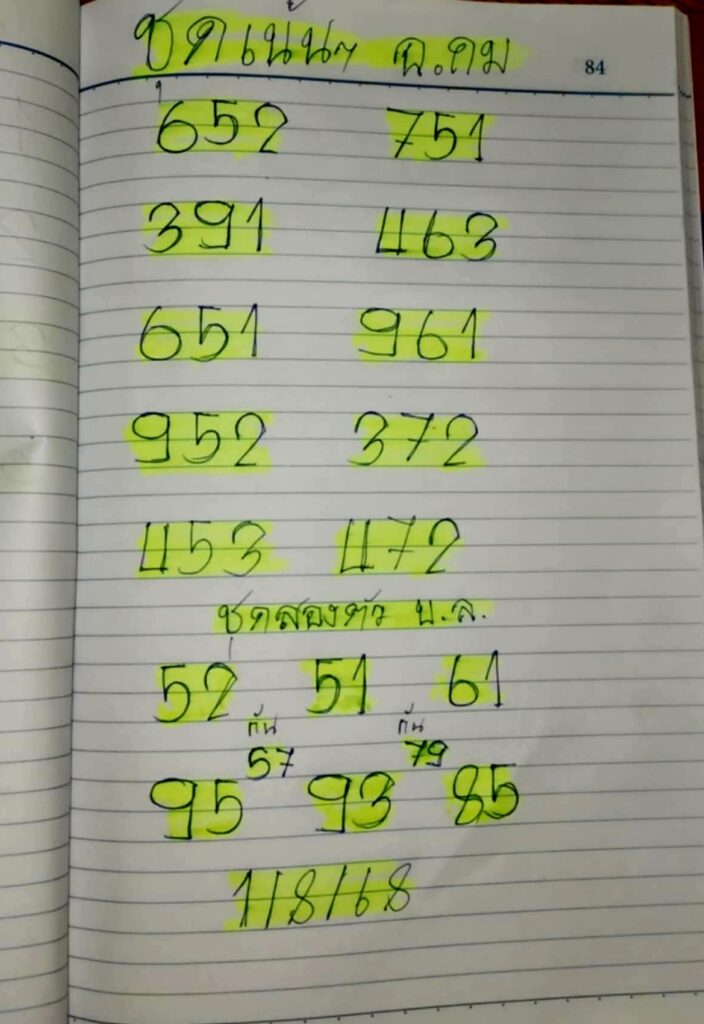 ชุดเน้นๆ อ.คม
84
652 751
391 463
651 961
952 372
453 472
ชุดสองตัว บ.ล.
52 51 61
กัน กัน
57 79
95 93 85
1/8/68